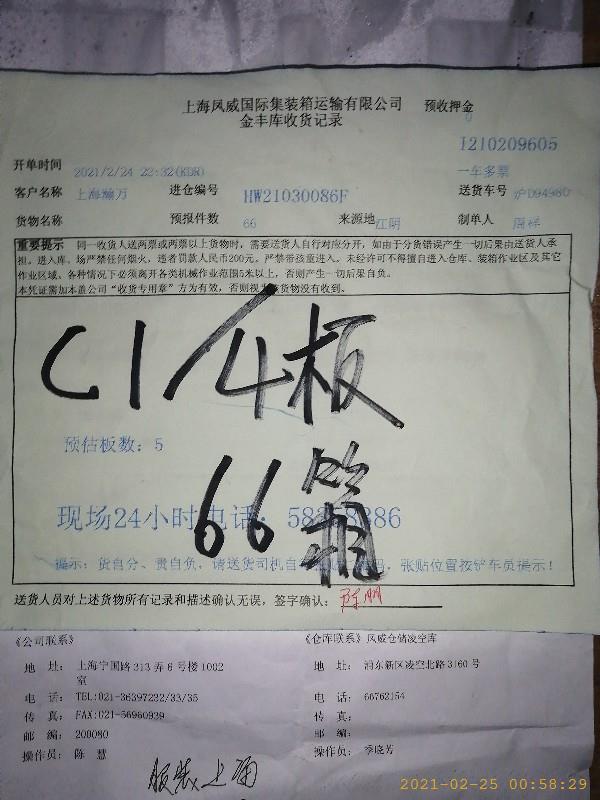 上海凤威国际集装箱运输有限公司 预收押金
金丰库收货记录 0
I210209605
开单时间 2021/2/24 22:32(KDR) 一车多票
客户名称 上海瀚万 进仓编号 HW21030086F 送货车号 沪D94980
货物名称 预报件数 66 来源地 江阴 制单人 周祥
重要提示 同一收货人送两票或两票以上货物时，需要送货人自行对应分开，如由于分货错误产生一切后果由送货人承
担。进入库、场严禁任何烟火，违者罚款人民币200元。严禁带孩童进入。未经许可不得擅自进入仓库、装箱作业区及其它
作业区域。各种情况下必须离开各类机械作业范围5米以上，否则产生一切后果自负。
本凭证需加本盖公司“收货专用章”方为有效，否则视为货物没有收到。
C1/4板
预估板数：5
66箱
现场24小时电话：58 386
提示：货自分、责自负，请送货司机自 码，张贴位置按铲车员提示！
送货人员对上述货物所有记录和描述确认无误，签字确认：
《公司联系》 《仓库联系》凤威仓储凌空库
地 址： 上海宁国路313弄6号楼1002 地 址： 浦东新区凌空北路3160号
室
电 话： TEL:021-36397232/33/35 电 话： 66762154
传 真： FAX:021-56960939 传 真：
邮 编： 200080 邮 编：
操作员： 陈 慧 操作员： 季晓芳
服装上海
2021-02-25 00:58:29